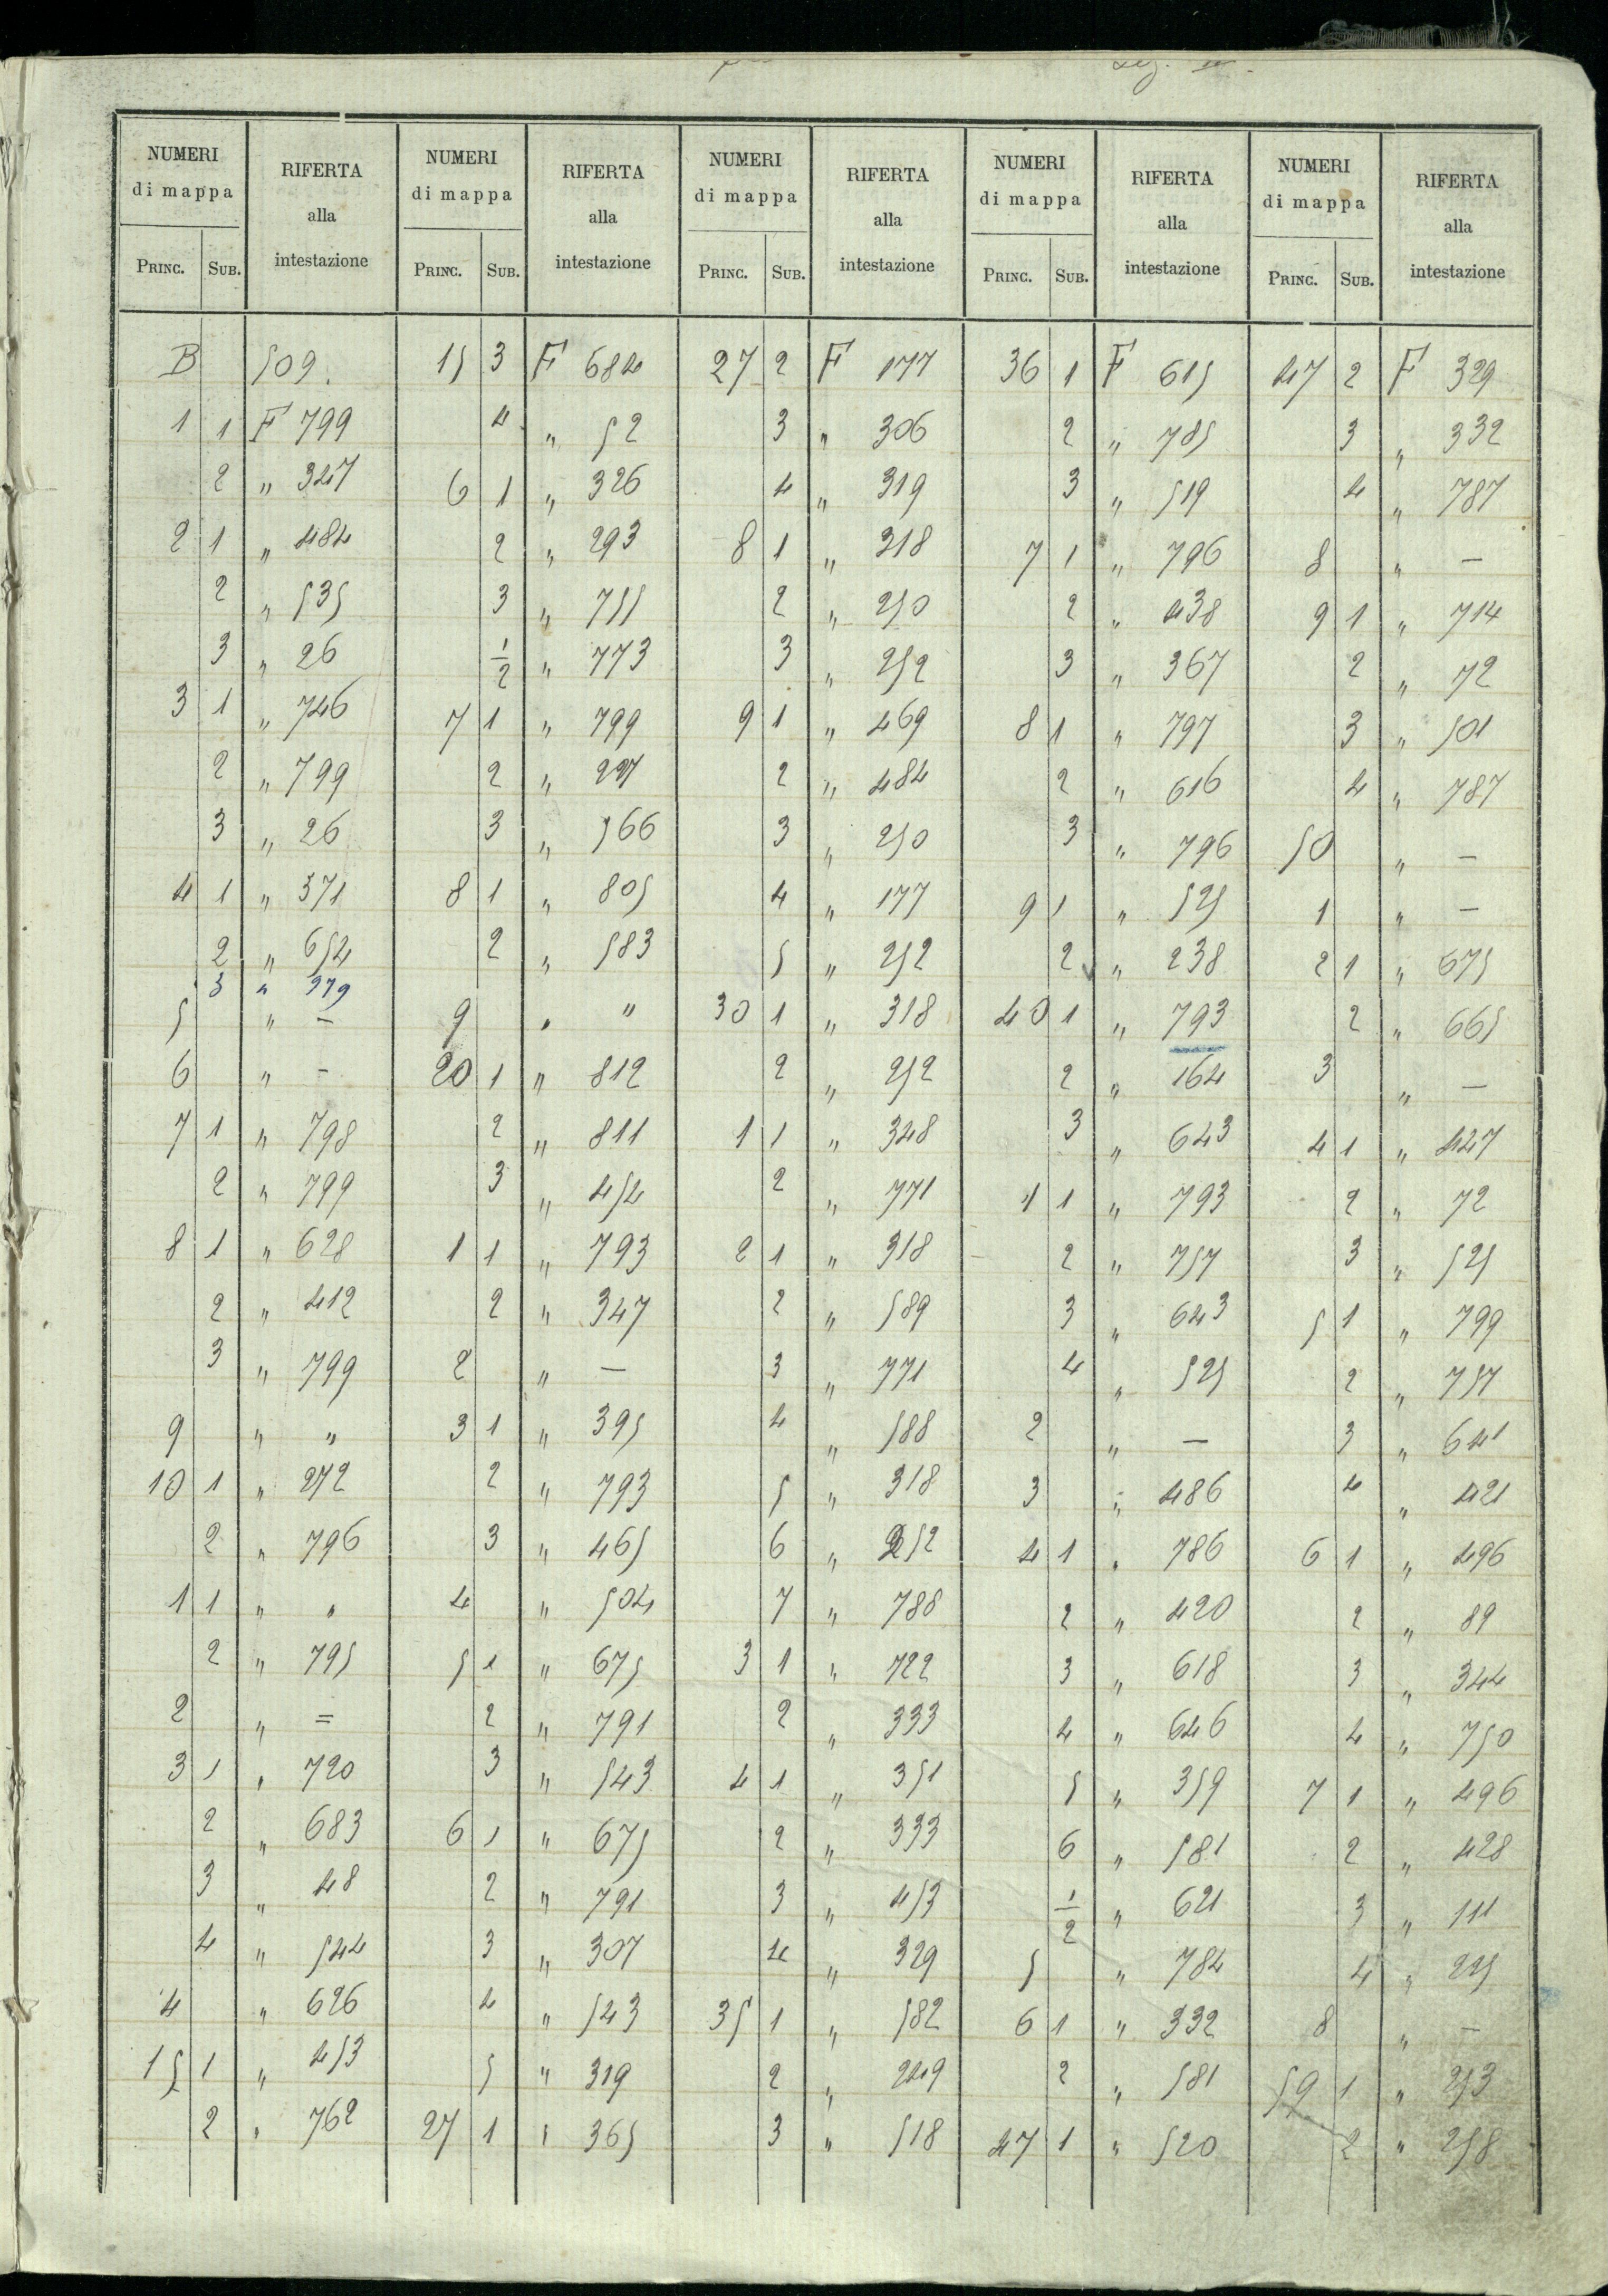 NUMERI di mappa | RIFERTA alla intestazione | NUMERI di mappa | RIFERTA alla intestazione | NUMERI di mappa | RIFERTA alla intestazione | NUMERI di mappa | RIFERTA alla intestazione | NUMERI di mappa | RIFERTA alla intestazione
PRINC. | SUB. | | PRINC. | SUB. | | PRINC. | SUB. | | PRINC. | SUB. | | PRINC. | SUB.
B | | 509. | 15 | 3 | F 684 | 27 | 2 | F 177 | 36 | 1 | F 615 | 47 | 2 | F 329
1 | 1 | F 799 | | 4 | " 52 | | 3 | " 306 | | 2 | " 785 | | 3 | " 332
| 2 | " 347 | 6 | 1 | " 326 | | 4 | " 319 | | 3 | " 519 | | 4 | " 787
2 | 1 | " 484 | | 2 | " 293 | 8 | 1 | " 318 | 7 | 1 | " 796 | 8 | | " —
| 2 | " 535 | | 3 | " 755 | | 2 | " 250 | | 2 | " 438 | 9 | 1 | " 714
| 3 | " 26 | | 1/2 | " 773 | | 3 | " 252 | | 3 | " 367 | | 2 | " 72
3 | 1 | " 746 | 7 | 1 | " 799 | 9 | 1 | " 469 | 8 | 1 | " 797 | | 3 | " 501
| 2 | " 799 | | 2 | " 227 | | 2 | " 484 | | 2 | " 616 | | 4 | " 787
| 3 | " 26 | | 3 | " 566 | | 3 | " 250 | | 3 | " 796 | 50 | | " —
4 | 1 | " 371 | 8 | 1 | " 805 | | 4 | " 177 | 9 | 1 | " 525 | 1 | | " —
| 2 | " 654 | | 2 | " 583 | | 5 | " 252 | | 2 | " 238 | 2 | 1 | " 675
| 3 | " 379
5 | | " — | 9 | | " " | 30 | 1 | " 318 | 40 | 1 | " 793 | | 2 | " 665
6 | | " — | 20 | 1 | " 812 | | 2 | " 252 | | 2 | " 164 | 3 | | " —
7 | 1 | " 798 | | 2 | " 811 | 1 | 1 | " 348 | | 3 | " 643 | 4 | 1 | " 447
| 2 | " 799 | | 3 | " 454 | | 2 | " 771 | 1 | 1 | " 793 | | 2 | " 72
8 | 1 | " 628 | 1 | 1 | " 793 | 2 | 1 | " 318 | | 2 | " 757 | | 3 | " 525
| 2 | " 412 | | 2 | " 347 | | 2 | " 589 | | 3 | " 643 | 5 | 1 | " 799
| 3 | " 799 | 2 | | " — | | 3 | " 771 | | 4 | " 525 | | 2 | " 757
9 | | " " | 3 | 1 | " 395 | | 4 | " 588 | 2 | | " — | | 3 | " 641
10 | 1 | " 272 | | 2 | " 793 | | 5 | " 318 | 3 | | " 486 | | 4 | " 421
| 2 | " 796 | | 3 | " 465 | | 6 | " 252 | 4 | 1 | " 786 | 6 | 1 | " 496
1 | 1 | " " | 4 | | " 504 | | 7 | " 788 | | 2 | " 420 | | 2 | " 89
| 2 | " 795 | 5 | 1 | " 675 | 3 | 1 | " 722 | | 3 | " 618 | | 3 | " 344
2 | | " = | | 2 | " 791 | | 2 | " 333 | | 4 | " 646 | | 4 | " 750
3 | 1 | " 720 | | 3 | " 543 | 4 | 1 | " 351 | | 5 | " 359 | 7 | 1 | " 496
| 2 | " 683 | 6 | 1 | " 675 | | 2 | " 333 | | 6 | " 581 | | 2 | " 428
| 3 | " 48 | | 2 | " 791 | | 3 | " 453 | | 1/2 | " 621 | | 3 | " 111
| 4 | " 544 | | 3 | " 307 | | 4 | " 329 | 5 | | " 784 | | 4 | "
4 | | " 626 | | 4 | " 543 | 35 | 1 | " 582 | 6 | 1 | " 332 | 8 | | " —
15 | 1 | " 453 | | 5 | " 319 | | 2 | " 249 | | 2 | " 581 | 59 | 1 | " 253
| 2 | " 762 | 27 | 1 | " 365 | | 3 | " 518 | 47 | 1 | " 520 | | 2 | " 258